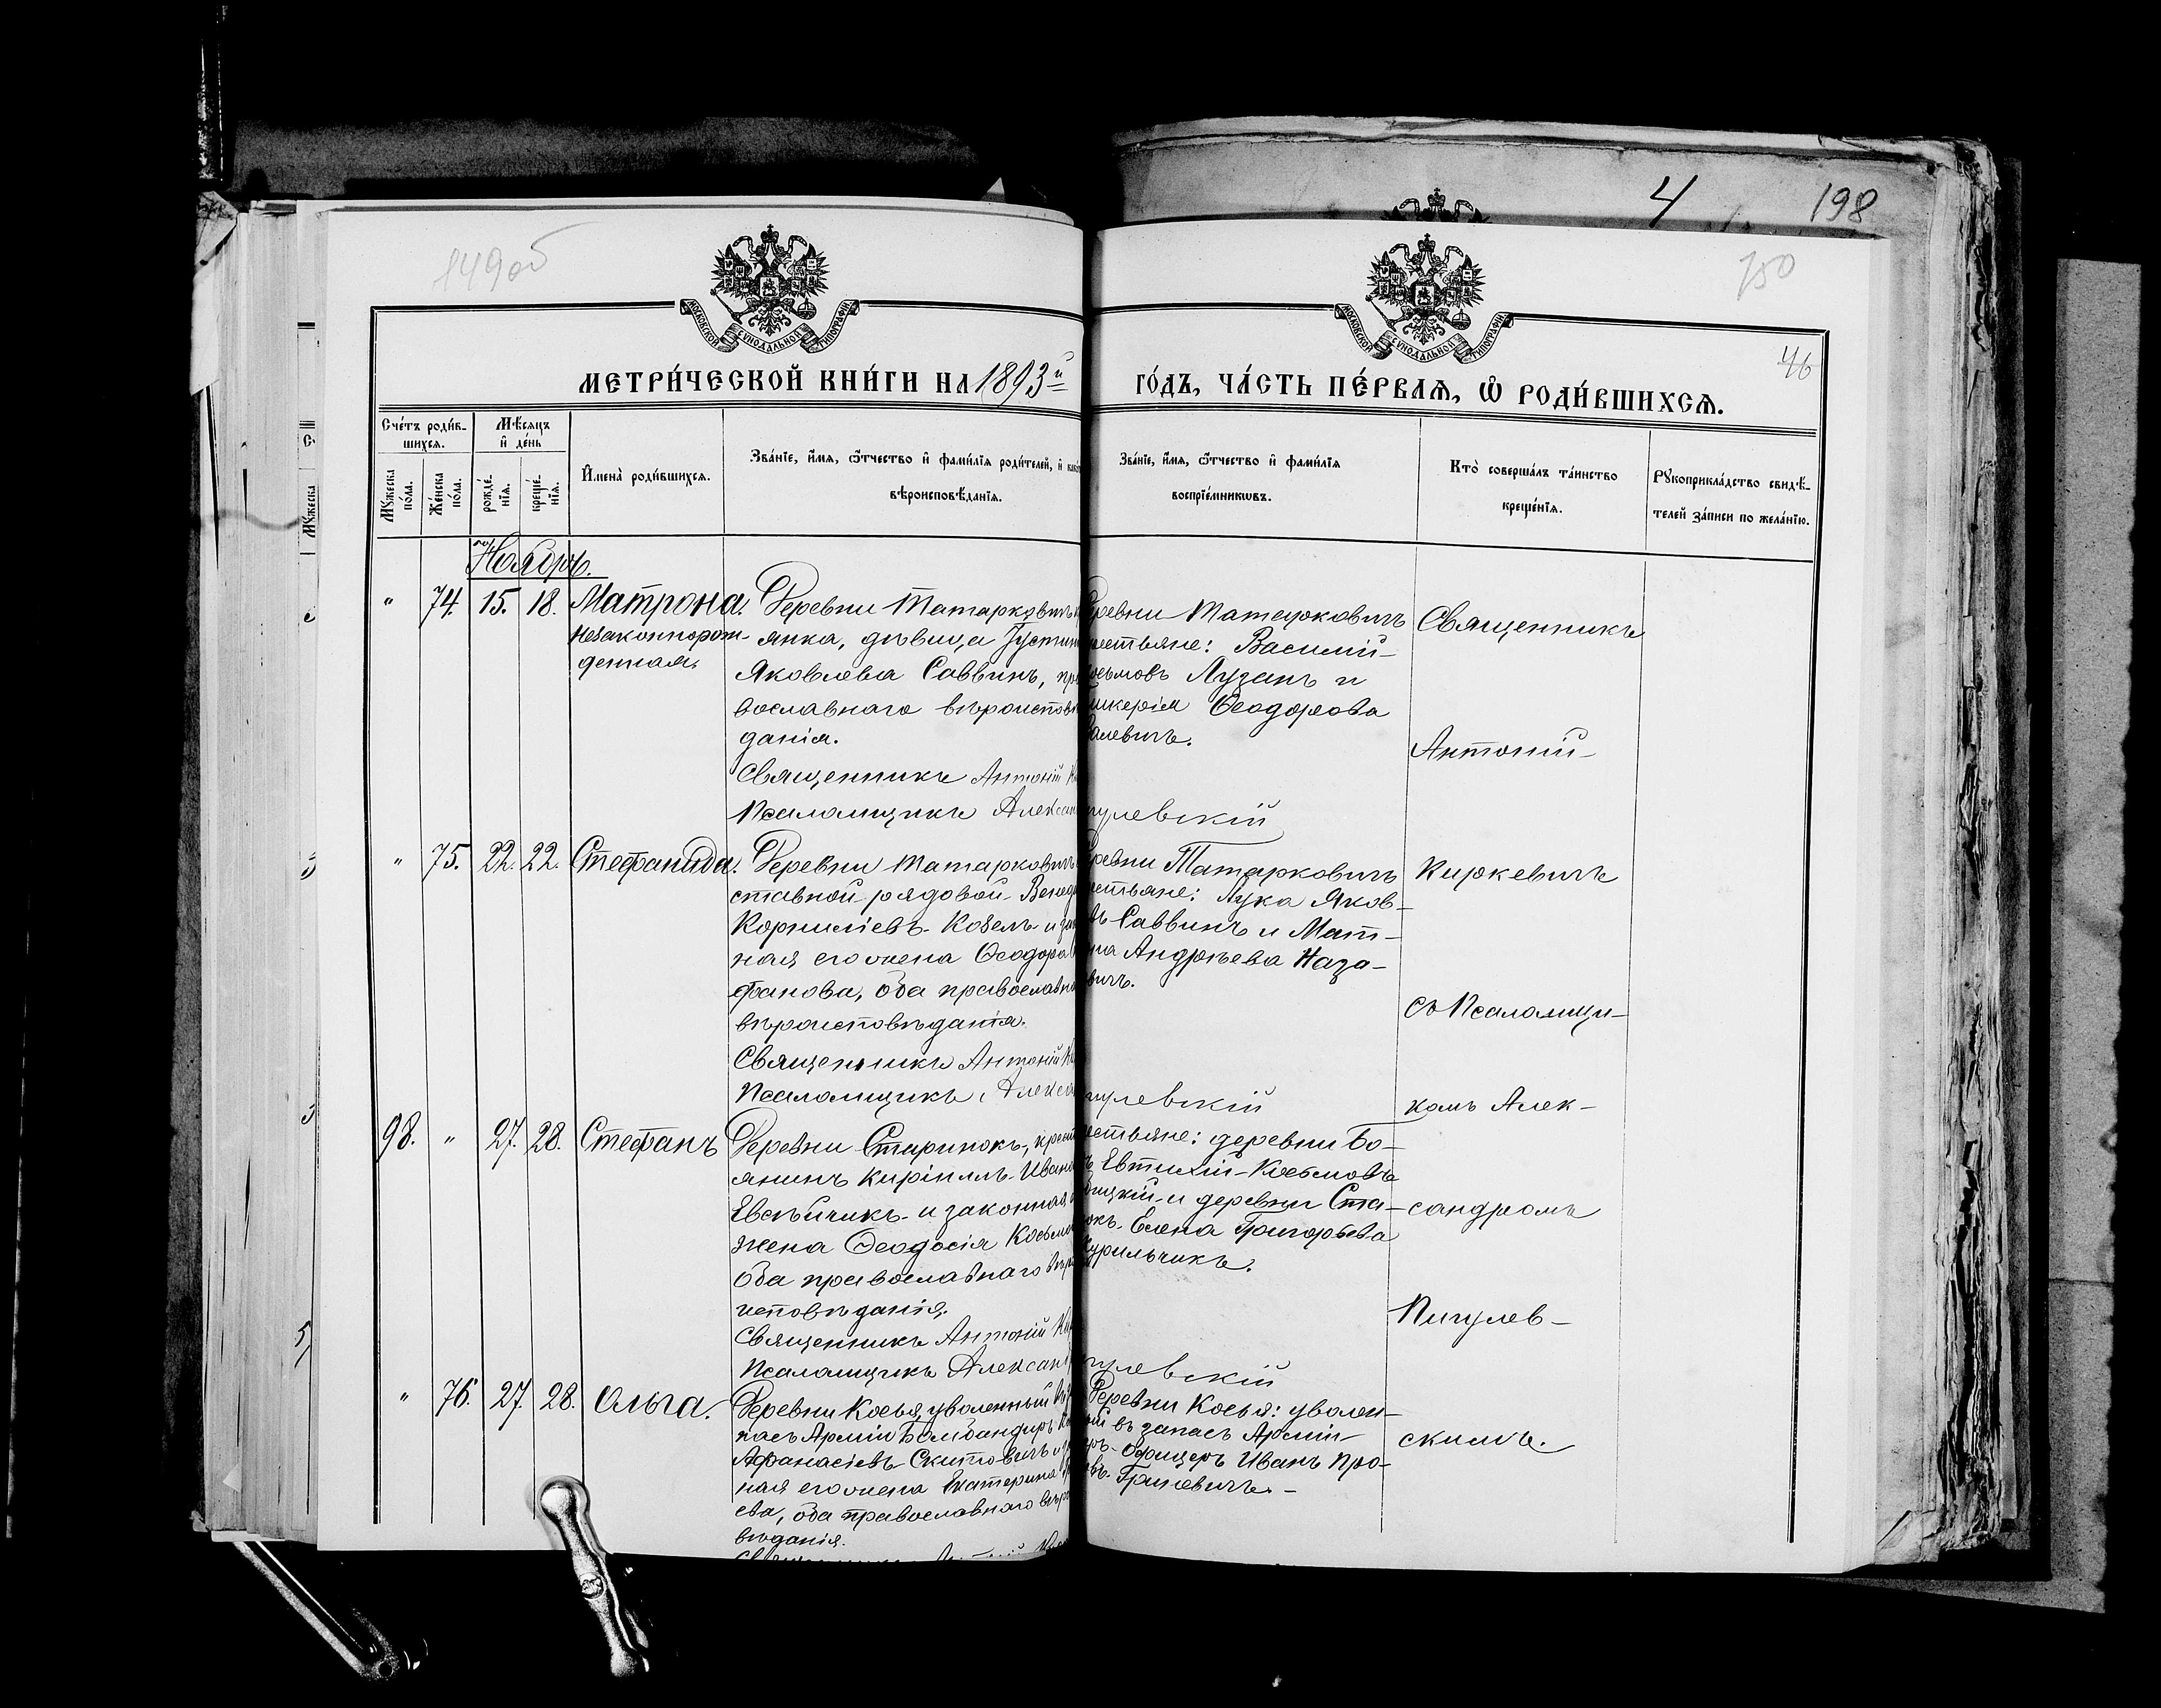 4 198
149об
150
46
МОСКОВСКОЙ СѴНОДАЛЬНОЙ ТИПОГРАФІИ
МОСКОВСКОЙ СѴНОДАЛЬНОЙ ТИПОГРАФІИ
МЕТРИ́ЧЕСКОЙ КНИ́ГИ НА 1893й
ГО́ДЪ, ЧА́СТЬ ПЕ́РВАѦ, Ѡ҆ РОДИ́ВШИХСѦ.
Сче́тъ роди́в-
шихсѧ.
Мꙋжеска по́ла.
Же́нска по́ла.
Мѣ́сѧцъ
и҆ де́нь
рожде́-
нїѧ.
креще́-
нїѧ.
И҆мена̀ роди́вшихсѧ.
Зва́нїе, и҆́мѧ, ѻ҆́тчество и҆ фами́лїѧ роди́телей, и҆
вѣроисповѣ́данїѧ.
Зва́нїе, и҆́мѧ, ѻ҆́тчество и҆ фами́лїѧ
воспрїе́мникѡвъ.
Кто̀ соверша́лъ та́инство
креще́нїѧ.
Рꙋкоприкла́дство свидѣ́-
телей за́писи по жела́нїю.
Ноябрь.
" 74. 15. 18. Матрона.
незаконнорож-
денная.
Деревни Татарковичъ
янка, дѣвица Іустин
Яковлева Саввинъ, пра
вославнаго вѣроисповѣ
данія.
Священникъ Антоній Ки
Псаломщикъ Алексан
ревни Татарковичъ
рестьяне: Василій
Косьмовъ Лузанъ и
икерія Ѳеодорова
алевичъ.
гулевскій
Священникъ
Антоній
" 75. 22. 22. Стефанида.
Деревни Татарковичъ
ставной рядовой Венед
Корниліевъ Козелъ и зак
ная его жена Ѳеодора
фанова, оба православна
вѣроисповѣданія.
Священникъ Антоній Ки
Псаломщикъ Алекса
ревни Татарковичъ
рестьяне: Лука Яков-
въ Саввинъ и Мат-
на Андреева Наза-
вичъ.
гулевскій
Киркевичъ
съ Псаломщи-
комъ Алек-
98. " 27. 28. Стефанъ
Деревни Старинокъ, крест
янинъ Кириллъ Ивано
Евсѣйчикъ и законная е
жена Ѳеодосія Косьмо
оба православнаго вѣро
исповѣданія.
Священникъ Антоній Кир
Псаломщикъ Алексан
рестьяне: деревни Бо-
ъ Евтихій Косьмовъ
ицкій и деревни Ста-
окъ Елена Григорьева
Курильчикъ.
гулевскій
сандромъ
Пигулев-
" 76. 27. 28. Ольга.
Деревни Косья, уволенный въ
пасъ Арміи Бомбандиръ
Афанасіевъ Скитовичъ и
ная его жена Екатерина
ева, оба православнаго вѣро
вѣданія.
Деревни Косья: уволен-
ный въ запасъ Арміи
ръ-Офицеръ Иванъ Про-
въ Гриневичъ.
скимъ.